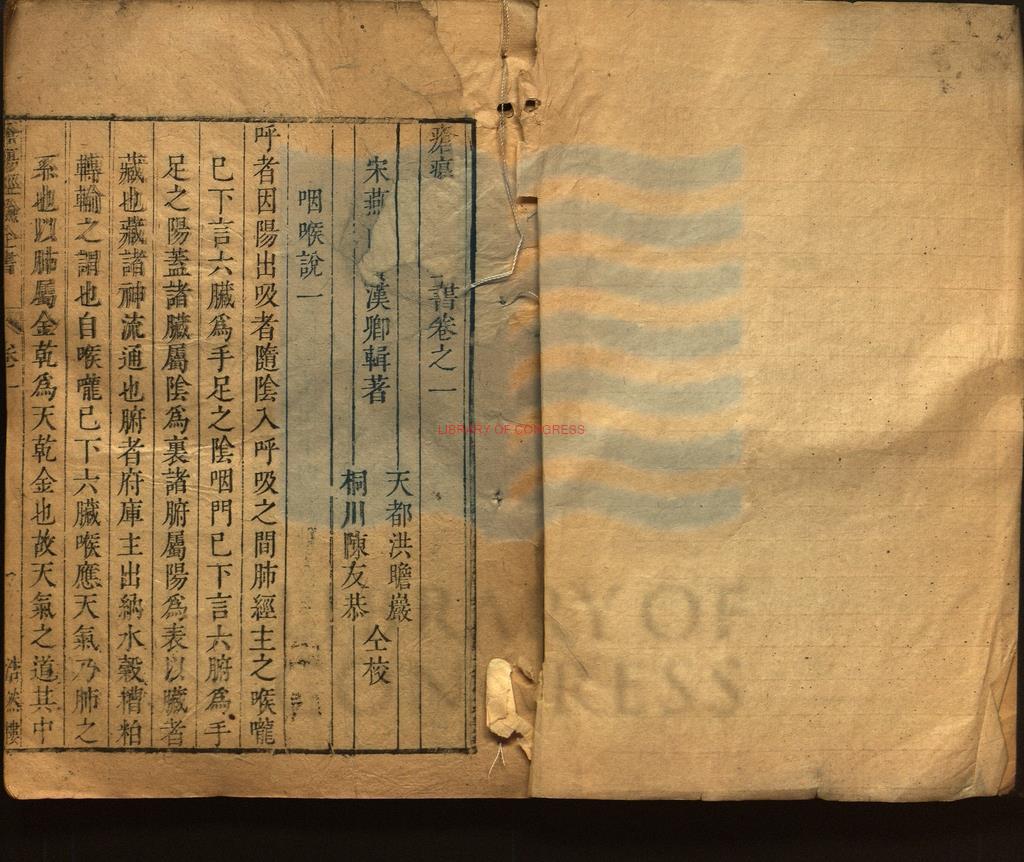 瘡瘍
書卷之一
宋燕
漢卿輯著
天都洪瞻巖
桐川陳友恭
仝校
咽喉說一
呼者因陽出吸者隨陰入呼吸之間肺經主之喉嚨
已下言六臟爲手足之陰咽門已下言六腑爲手
足之陽蓋諸臟屬陰爲裏諸腑屬陽爲表以臟者
藏也藏諸神流通也腑者府庫主出納水穀糟粕
轉輸之謂也自喉嚨已下六臟喉應天氣乃肺之
系也以肺屬金乾爲天乾金也故天氣之道其中
全書
卷一
浩然樓
LIBRARY OF CONGRESS